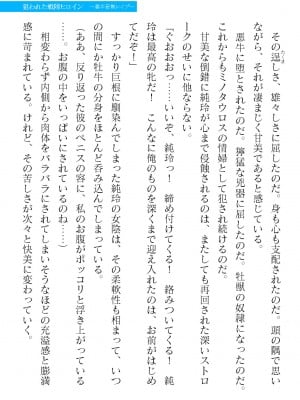 狙われた戦隊ヒロイン
その逞しさ、雄々しさに屈したのだ。身も心も支配されたのだ。頭の隅で思い
ながら、それが凄まじく甘美であると感じている。
悪牛に堕とされたのだ。獰猛な兇器に屈したのだ。牡獣の奴隷になったのだ。
これからもミノタウロスの情婦として犯され続けるのだ。
甘美な倒錯に純玲が心まで侵蝕されるのは、またしても再開された深いストロ
ークのせいに他ならない。
「ぐおおおっ……いいぞ、純玲っ! 締め付けてくる! 絡みついてくる! 純
玲は最高の牝だ! こんなに俺のものを深くまで迎え入れたのは、お前がはじめ
てだぞ!」
すっかり巨根に馴染んでしまった純玲の女陰は、その柔軟性も相まって、いつ
の間にか牡牛の分身をほとんど呑み込んでしまっている。
(ああ、反り返った彼のペニスの容に、私のお腹がポッコリと浮き上がっている
……。お腹の中をいっぱいにされているのね……)
相変わらず内側から肉体をバラバラにされてしまいそうなほどの充溢感と膨満
感に苛まれている。けれど、その苦しさが次々と快美に変わっていく。